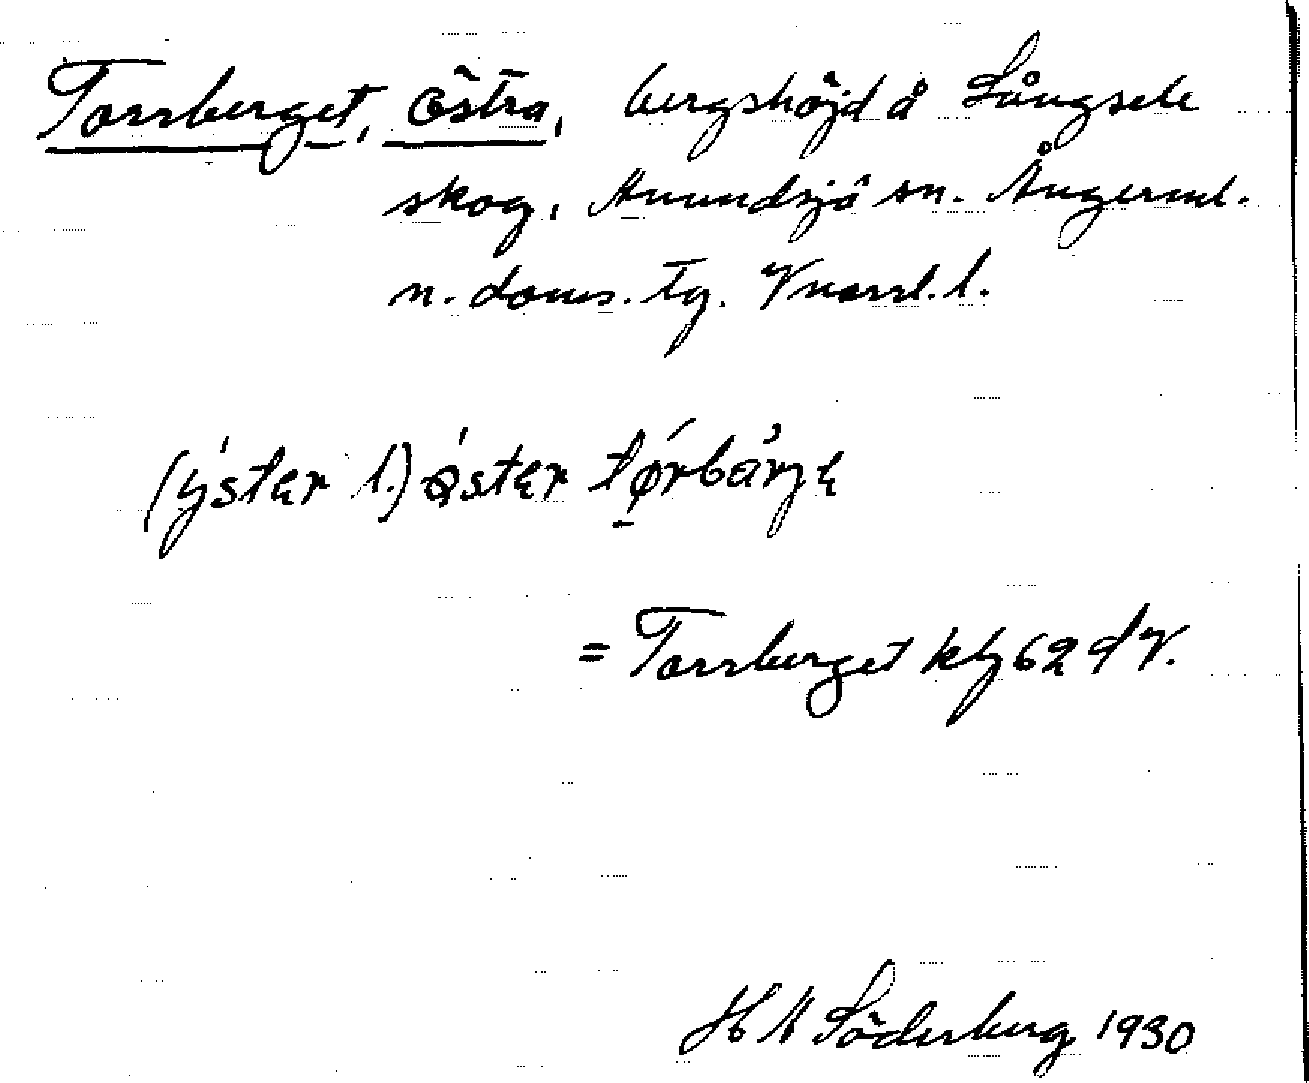 Torrberget, Östra, bergshöjd å Långsele
skog, Anundsjö sn. Ångerml.
n. doms. tg. Vnorrl. l.
(ýster l.) øster tørbärjε
= Torrberget kbl 62 d V.
H A Söderberg 1930